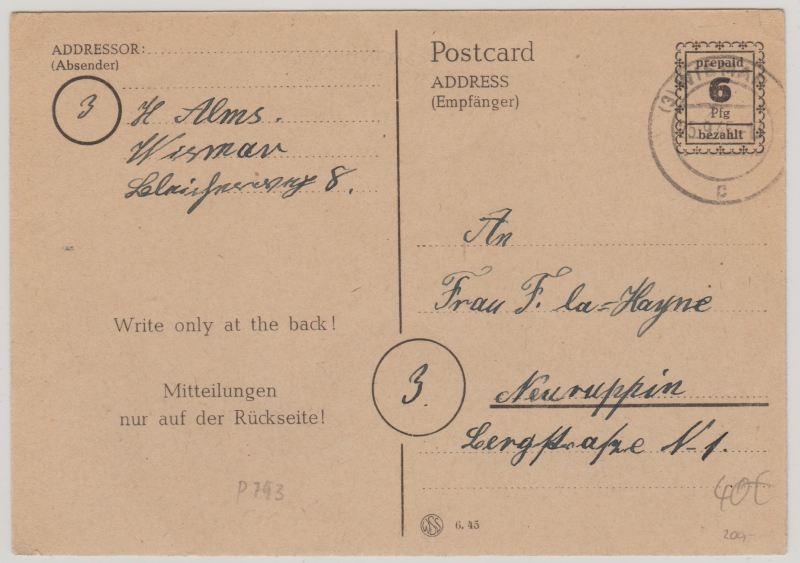 ADDRESSOR:
(Absender)
3
H Alms.
Wismar
Bleicherweg 8.
Write only at the back!
Mitteilungen
nur auf der Rückseite!
P 793
Postcard
ADDRESS
(Empfänger)
prepaid
6
Pfg
bezahlt
(3) WISMAR
c
An
Frau F. la=Hayne
3.
Neuruppin
Bergstraße N 1.
6. 45
40€
200,-